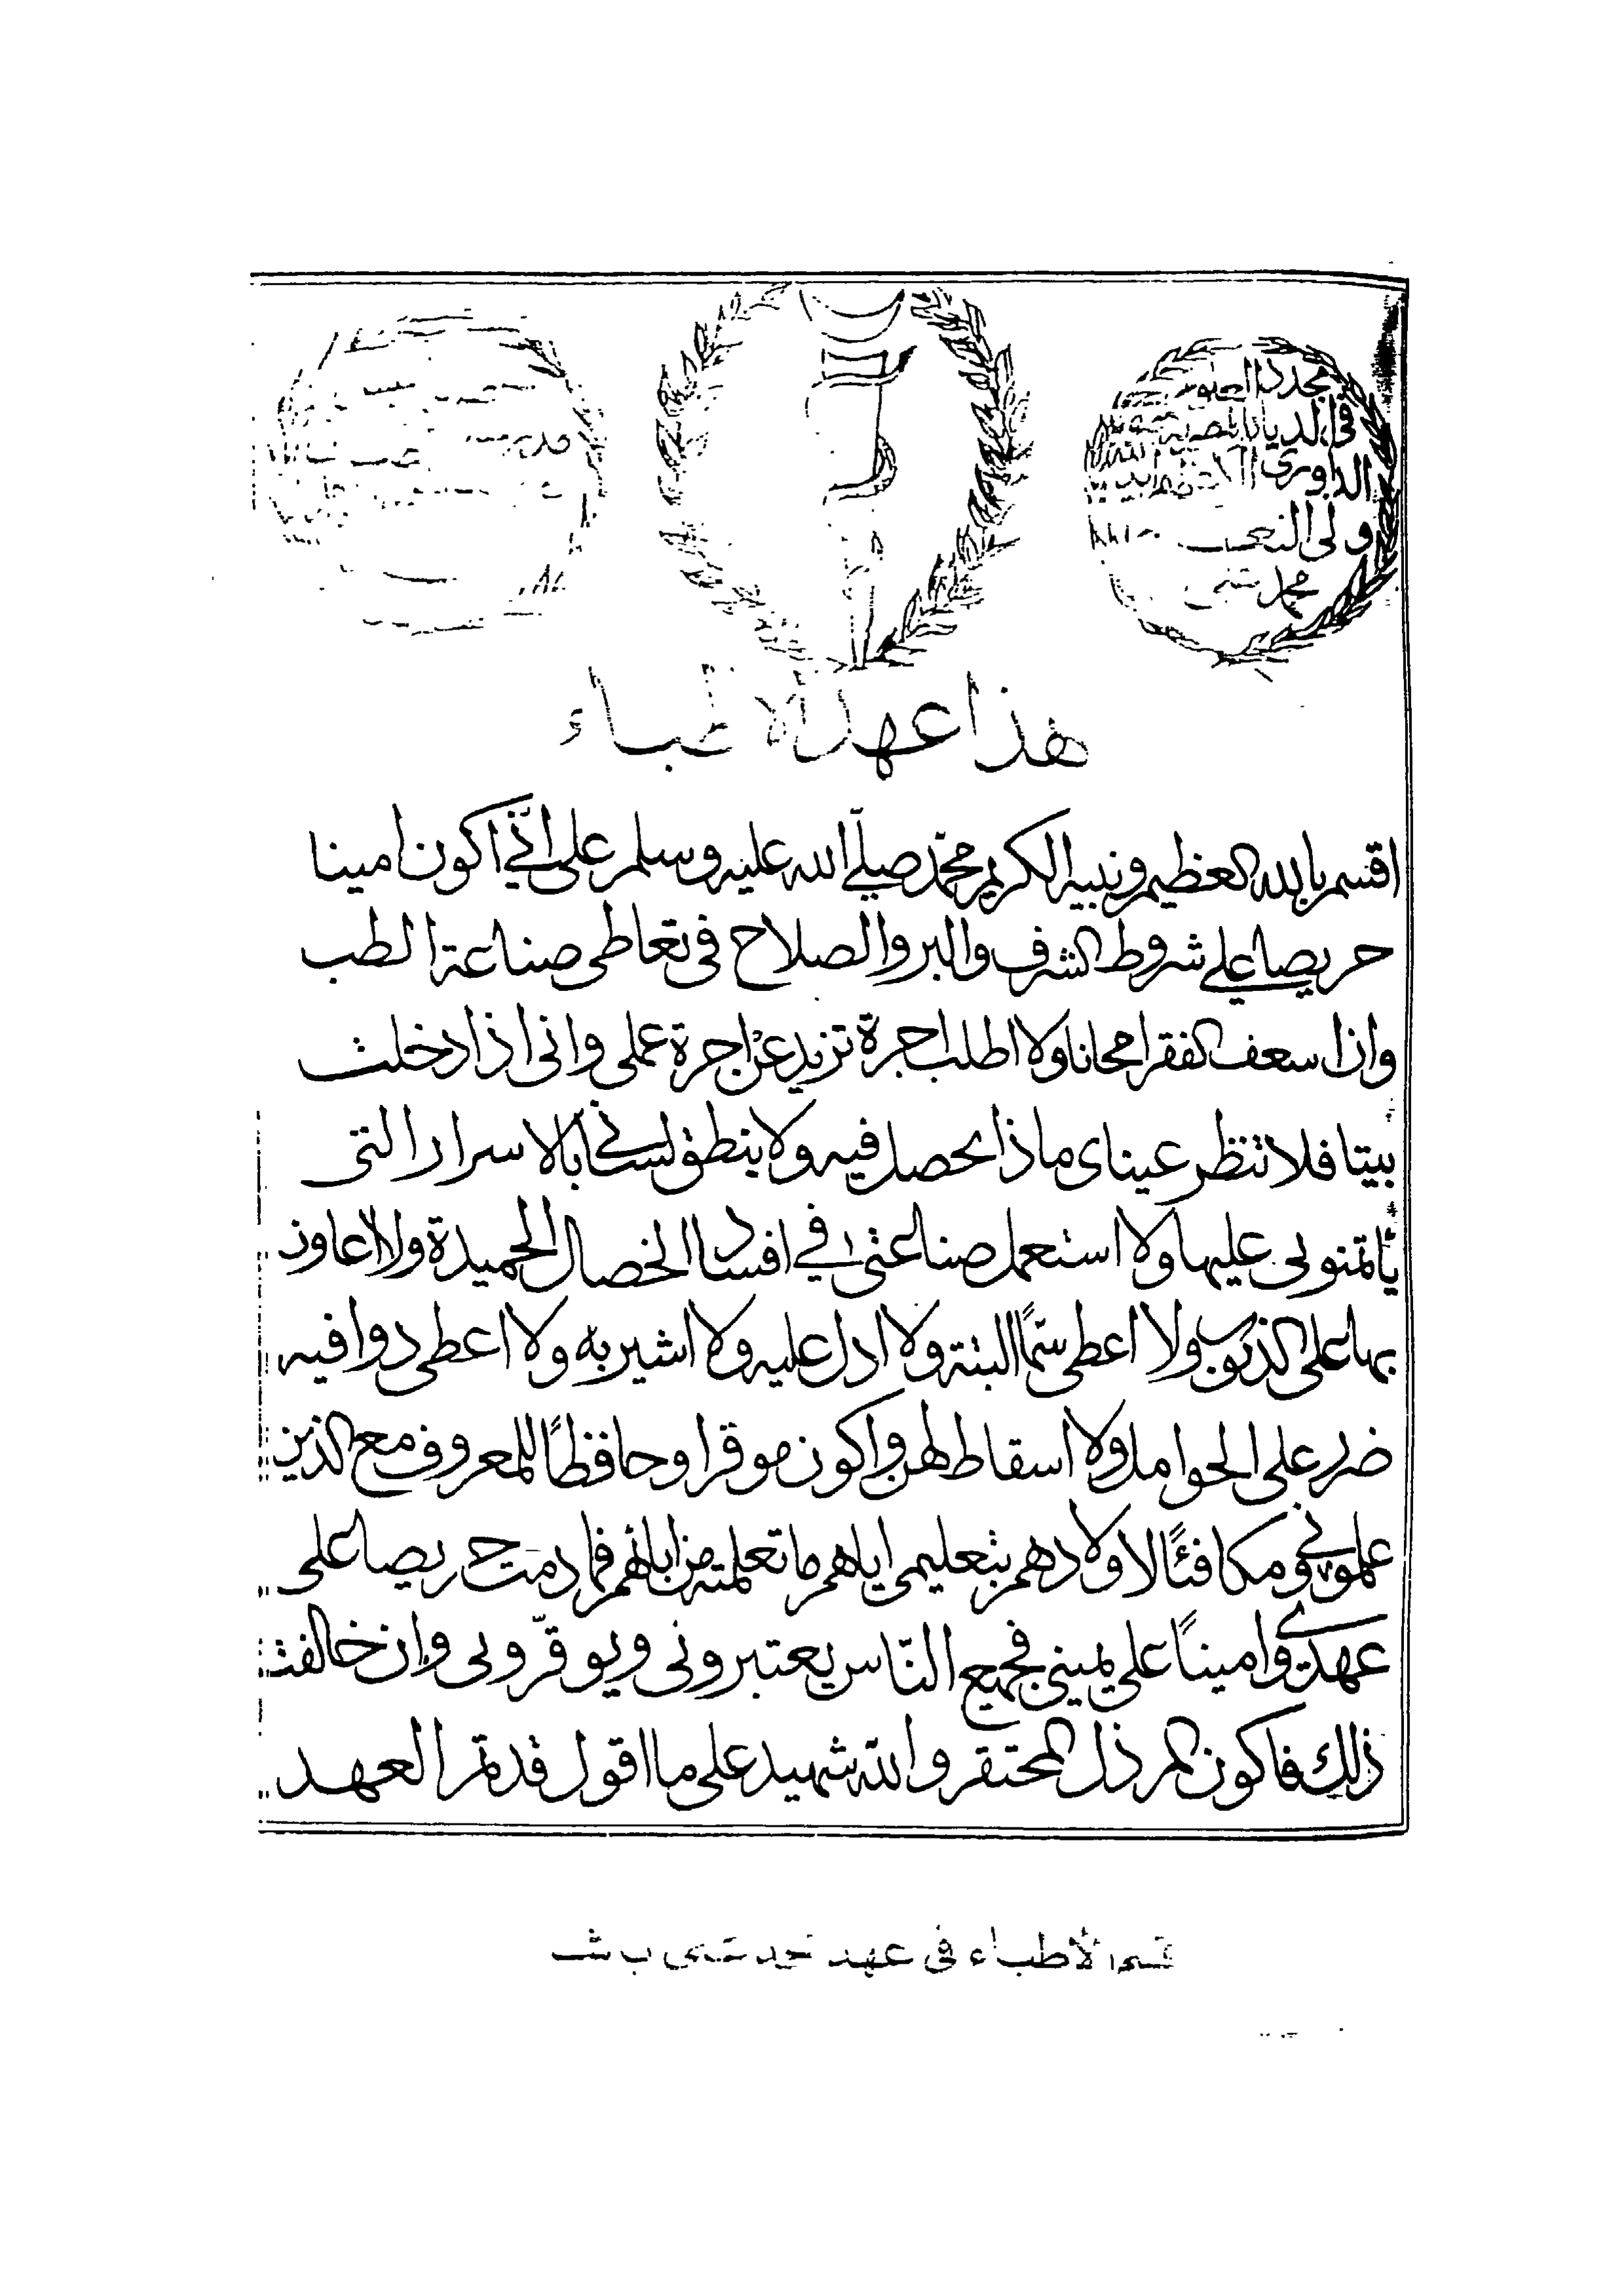 مجدد العلوم
فى الديار المصرية
الداورى الاعظم
ولى النعم
محمد على
هذا عهد الاطباء
اقسم بالله العظيم ونبيه الكريم محمّد صلّى الله عليه وسلم على انّى اكون امينا
حريصا على شروط الشرف والبر والصلاح فى تعاطى صناعة الطب
وان اسعف الفقرا مجانا ولا اطلب اجرة تزيد عن اجرة عملى وانى اذا دخلت
بيتا فلا تنظر عيناى ماذا يحصل فيه ولا ينطق لسانى بالاسرار التى
يأتمنونى عليها ولا استعمل صناعتى فى افساد الخصال الحميدة ولا اعاون
بها على الذنوب ولا اعطى سمًّا البتة ولا ادل عليه ولا اشير به ولا اعطى دوا فيه
ضرر على الحوامل ولا اسقاط لهن واكون موقرا وحافظاً للمعروف مع الذين
علمونى ومكافئًا لاولادهم بتعليمى اياهم ما تعلمته من ابائهم فما دمت حريصا على
عهدى وامينًا على يمينى فجميع النّاس يعتبرونى ويوقّرونى وان خالفت
ذلك فاكون المرذل المحتقر والله شهيد على ما اقول قد تم العهد
قسم الأطباء فى عهد